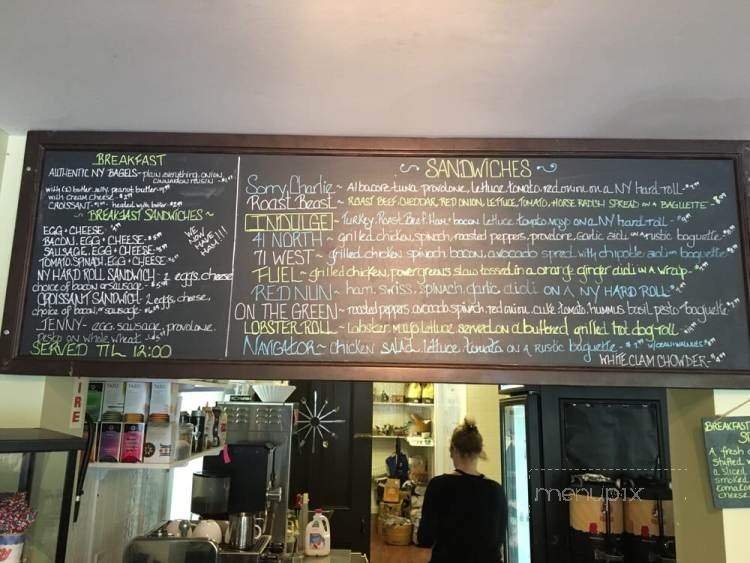 BREAKFAST
AUTHENTIC NY BAGELS~ plain, everything, onion,
CINNAMON RAISIN
with (2) butter, jelly, peanut butter
with cream cheese
CROISSANT heated with butter
~ BREAKFAST SANDWICHES ~
EGG + CHEESE
BACON, EGG + CHEESE
SAUSAGE, EGG + CHEESE
TOMATO, SPINACH, EGG + CHEESE
NY HARD ROLL SANDWICH- 2 eggs, cheese
choice of bacon or sausage
CROISSANT SANDWICH- 2 eggs, cheese,
choice of bacon, or sausage
JENNY- egg, sausage, provolone,
Pesto on whole wheat
SERVED TIL 12:00
WE
NOW
HAVE
HAM!!!
~ SANDWICHES ~
Sorry Charlie~ Albacore tuna, provolone, lettuce, tomato, red onion on a NY hard roll
Roast Beast~ ROAST BEEF, CHEDDAR, RED ONION, LETTUCE, TOMATO, HORSE RADISH SPREAD ON A BAGUETTE
INDULGE~ Turkey, Roast Beef, Ham + bacon, lettuce, tomato, mayo on a NY hard roll
41 NORTH~ grilled chicken, spinach, roasted peppers, provolone, garlic aioli on a rustic baguette
71 WEST~ grilled chicken, spinach, bacon, avocado spread with chipotle aioli - baguette
FUEL~ grilled chicken, power greens slaw tossed in a orange ginger aioli on a wrap
RED NUN~ ham, swiss, spinach, garlic aioli on A NY HARD ROLL
ON THE GREEN~ roasted peppers, avocado, spinach, red onion, cuke, tomato, hummus, basil, pesto - baguette
LOBSTER ROLL~ Lobster, mayo, lettuce served on a buttered grilled hot dog roll
NAVIGATOR~ chicken salad, lettuce, tomato on a rustic baguette
WHITE CLAM CHOWDER
FIRE
TAZO
TAZO
TAZO
menupix
BREAKFAST
A fresh